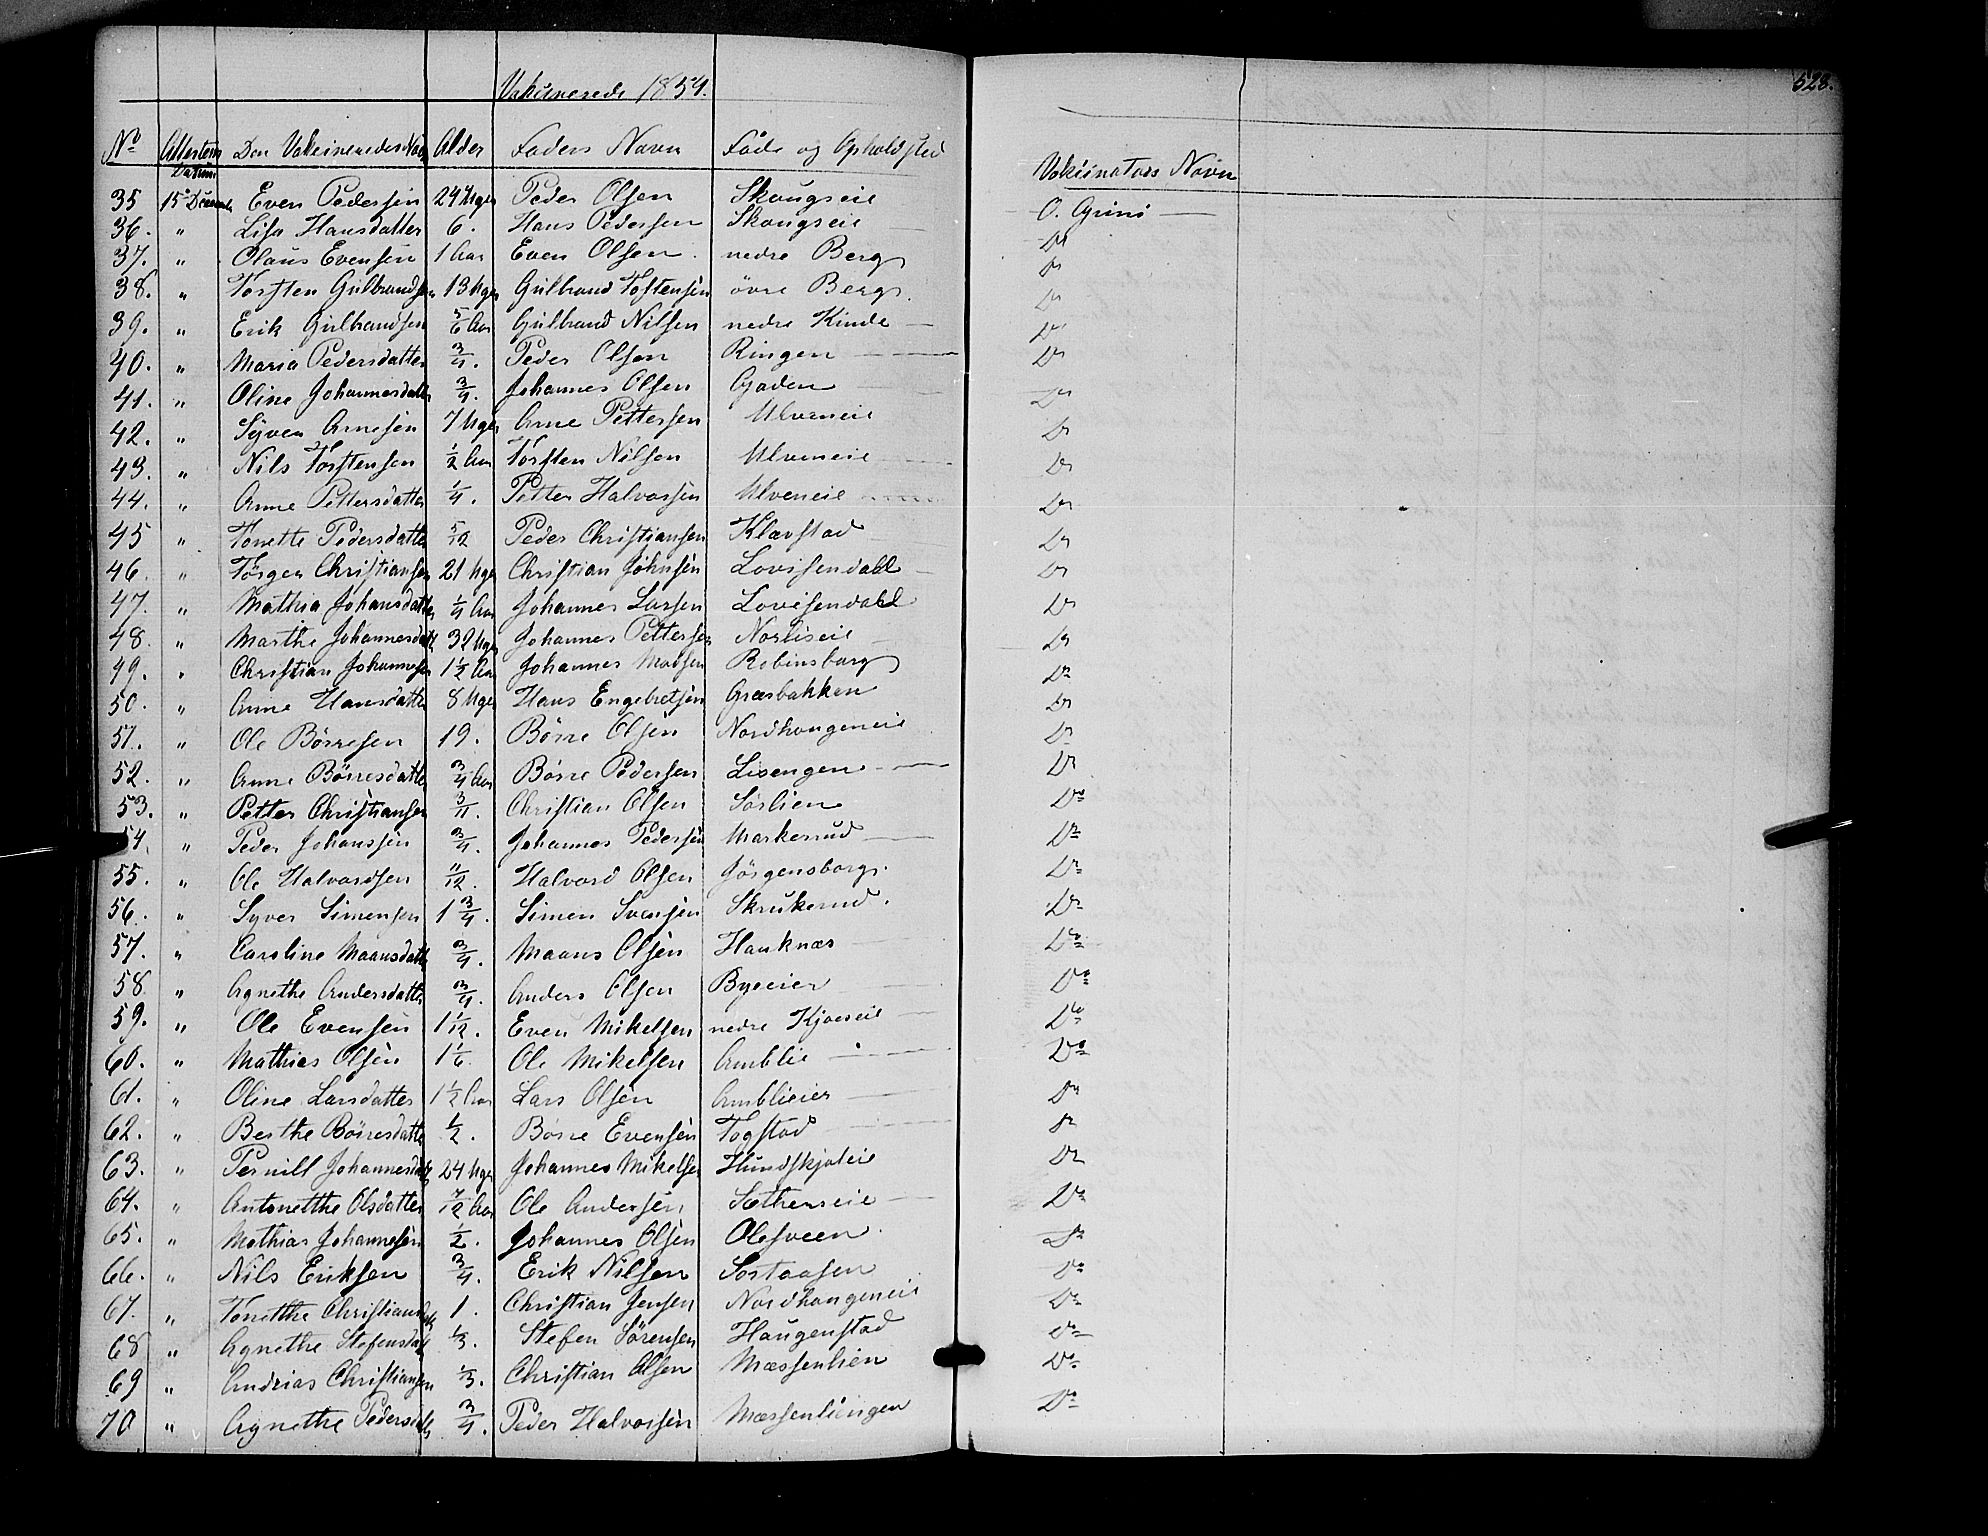 Vakcinerede 1854.
528.
No Attestens Datum Den Vakcineredes Navn Alder Faders Navn Føde og Opholdsted Vakcinators Navn
35 15de Decemb Even Pedersen 24 Uger Peder Olsen Skougseie O. Grini
36. " Lisa Hansdatter 6. Hans Pedersen Skougseie Do
37. " Olaus Evensen 1 Aar Even Olsen nedre Berg Do
38. " Torsten Gulbrandsen 13 Uger Gulbrand Tostensen övre Berg. Do
39. " Erik Gulbrandsen 5/6 Aar Gulbrand Nilsen nedre Kinde Do
40. " Maria Pedersdatter 3/4. Peder Olsen Ringen Do
41. " Oline Johannesdatter 3/4. Johannes Olsen Gaden Do
42. " Syver Arnesen 7 Uger Arne Pettersen Ulveneie Do
43. " Nils Torstensen 1/2 Aar Torsten Nilsen Ulveneie Do
44. " Anne Pettersdatter 1/4. Petter Halvorsen Ulveneie Do
45 " Tonette Pedersdatter 5/12 Peder Christiansen Klavstad Do
46. " Jörgen Christiansen 21 Uger Christian Johnsen Lovisendahl Do
47. " Mathia Johansdatter 1/4 Aar Johannes Larsen Lovisendahl Do
48. " Marthe Johannesdatt 32 Uger Johannes Pettersen Norliseie Do
49. " Christian Johannesen 1 1/2 Aar Johannes Madsen Robinsborg Do
50. " Anne Hansdatter 8 Uger Hans Engebretsen Græsbakken Do
51. " Ole Börresen 19. Börre Olsen Nordhougeneie Do
52. " Anne Börresdatter 3/4 Aar Börre Pedersen Lisengen Do
53. " Petter Christiansen 3/4. Christian Olsen Sörlien Do
54. " Peder Johanssen 3/4. Johannes Pedersen Markerud Do
55. " Ole Halvordsen 11/12. Halvord Olsen Jörgensborg. Do
56. " Syver Simensen 1 3/4. Simen Svensen Skrukerud. Do
57. " Caroline Maansdatt 3/4. Maans Olsen Hauknæs Do
58 " Agnethe Andersdatter 3/4. Anders Olsen Byeeier Do
59. " Ole Evensen 1 1/12. Even Mikelsen nedre Kjoeseie Do
60. " Mathias Olsen 1 1/6. Ole Mikelsen Amblie Do
61. " Oline Larsdatter 1 1/2 Aar Lars Olsen Amblieier Do
62. " Berthe Börresdatter 1/2. Börre Evensen Togstad Do
63. " Pernill Johannesdatt 24 Uger Johannes Mikelsen Hundskjoleie Do
64. " Antonetthe Olsdatter 7/12 Aar Ole Andersen Sætherseie Do
65. " Mathias Johannesen 1/2. Johannes Olsen Olesveen. Do
66. " Nils Eriksen 3/4. Erik Nilsen Sostaasen Do
67. " Tonetthe Christiansdatt 1. Christian Jensen Nordhougeneie Do
68 " Agnethe Stefensdatt 1/3. Stefen Sörensen Haugenstad Do
69 " Andrias Christiansen 1/3. Christian Olsen Mæssenlien Do
70 " Agnethe Pedersdatt 3/4. Peder Halvorsen Mæssenliengen Do